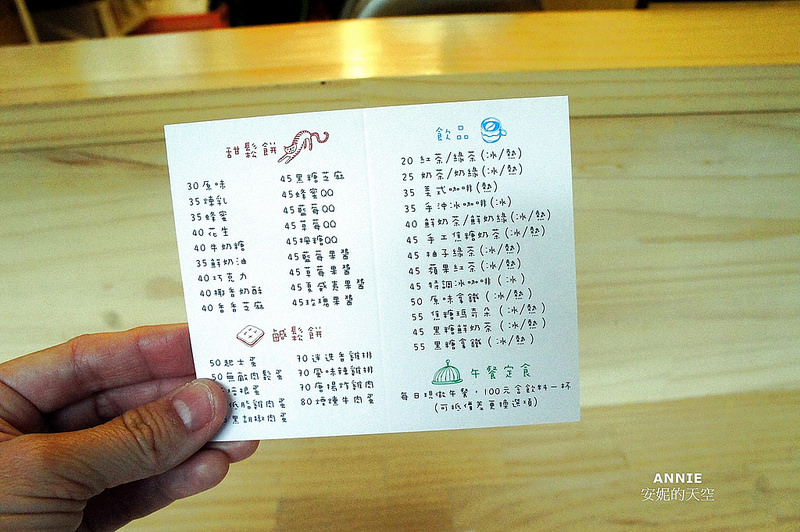 甜鬆餅
30 原味
35 煉乳
35 蜂蜜
40 花生
40 牛奶糖
35 鮮奶油
40 巧克力
40 椰香奶酥
40 香香芝麻
45 黑糖芝麻
45 蜂蜜QQ
45 藍莓QQ
45 草莓QQ
45 楓糖QQ
45 藍莓果醬
45 草莓果醬
45 夏威夷果醬
45 玫瑰果醬
鹹鬆餅
50 起士蛋
50 無敵肉鬆蛋
培根蛋
低脂雞肉蛋
黑胡椒肉蛋
70 迷迭香雞排
70 風味辣雞排
70 唐揚炸雞肉
80 煙燻牛肉蛋
飲品
20 紅茶/綠茶(冰/熱)
25 奶茶/奶綠(冰/熱)
35 美式咖啡(熱)
35 手沖冰咖啡(冰)
40 鮮奶茶/鮮奶綠(冰/熱)
45 手工焦糖奶茶(冰/熱)
45 柚子綠茶(冰/熱)
45 蘋果紅茶(冰/熱)
45 特調冰咖啡(冰)
50 原味拿鐵(冰/熱)
55 焦糖瑪奇朵(冰/熱)
45 黑糖鮮奶茶(冰/熱)
55 黑糖拿鐵(冰/熱)
午餐定食
每日現做午餐，100元含飲料一杯
(可抵價差更換選項)
ANNIE
安妮的天空